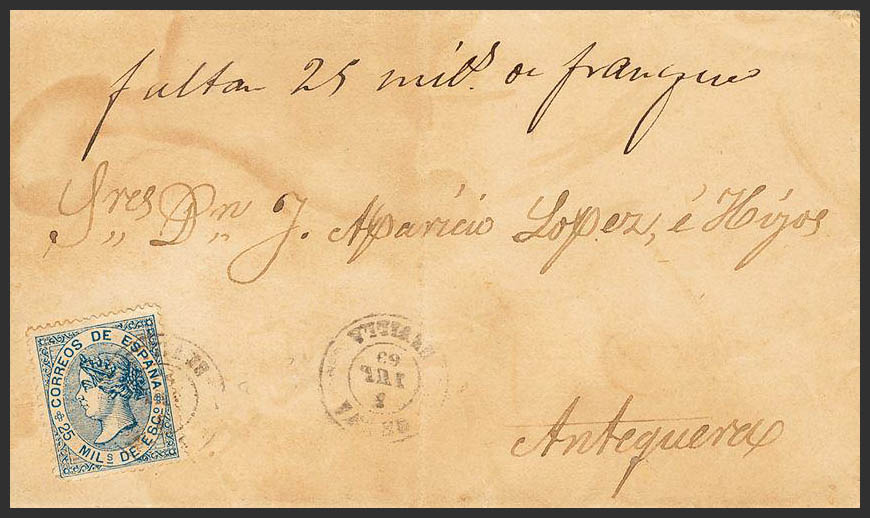 faltan 25 mils. de franqueo
Sres. Dn. J. Aparicio Lopez, é Hijos
CORREOS DE ESPAÑA
25 MILs DE ESCo
SEVILLA
JUL
69
Antequera